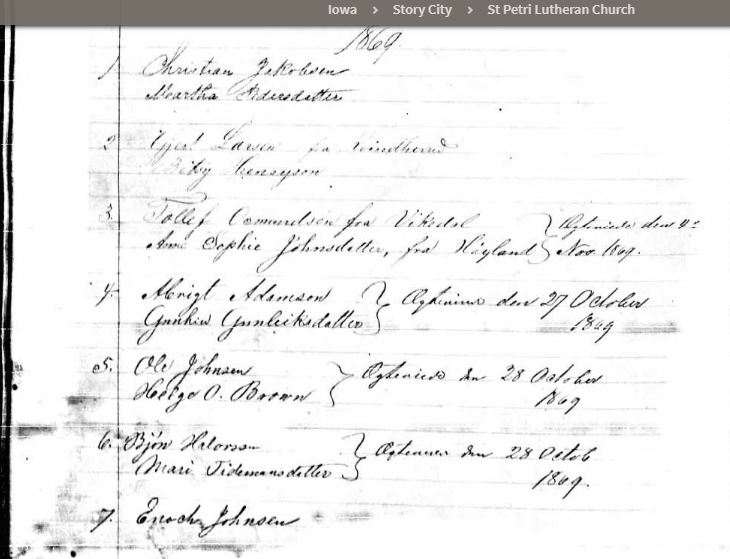 Iowa > Story City > St Petri Lutheran Church
1869.
1. Christian Jakobsen
Martha Pedersdatter
2 Larsen fra
Betsy Henryson
3. Tollef Osmundsen fra Vikedal } den 4de
Ane Sophie Johnsdatter, fra Høyland } Nov. 1869.
4. Adamson } den 27 October
Gunleiksdatter } 1869
5. Ole Johnsen } den 28 October
Helge O. Brown } 1869
6. Bjön Halvorsen } den 28 Octob
Mari Tidemansdatter } 1869.
7. Enoch Johnsen